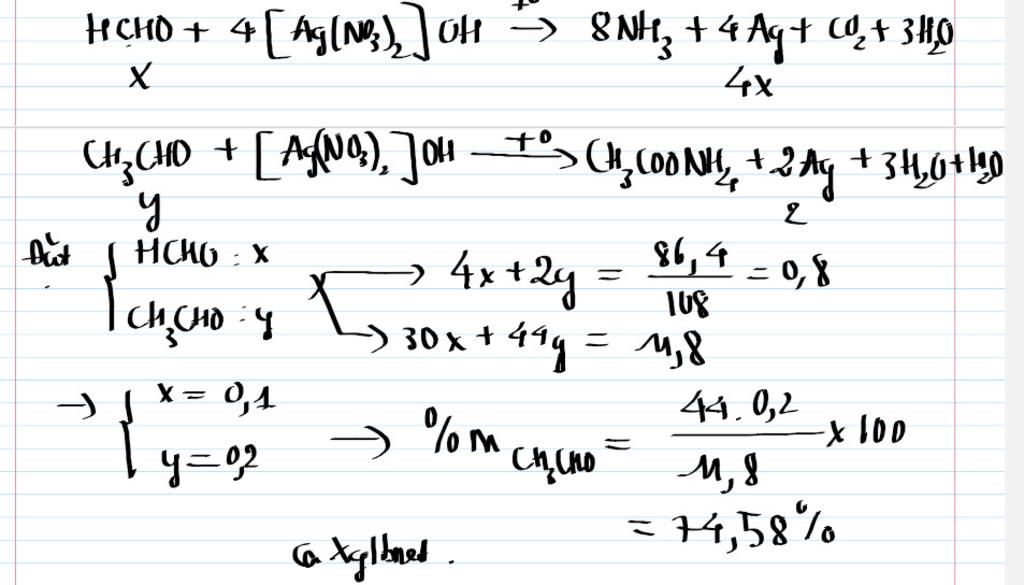 HCHO + 4[Ag(NO₃)₂]OH →^{t°} 8NH₃ + 4Ag + CO₂ + 3H₂O
x 4x
CH₃CHO + [Ag(NO₃)₂]OH →^{t°} CH₃COONH₄ + 2Ag + 3H₂O + H₂O
y 2
Đặt { HCHO : x → 4x + 2y = 86,4/108 = 0,8
CH₃CHO : y → 30x + 44y = 11,8
→ { x = 0,1
y = 0,2 → %m CH₃CHO = (44.0,2)/(11,8) x 100
= 74,58%